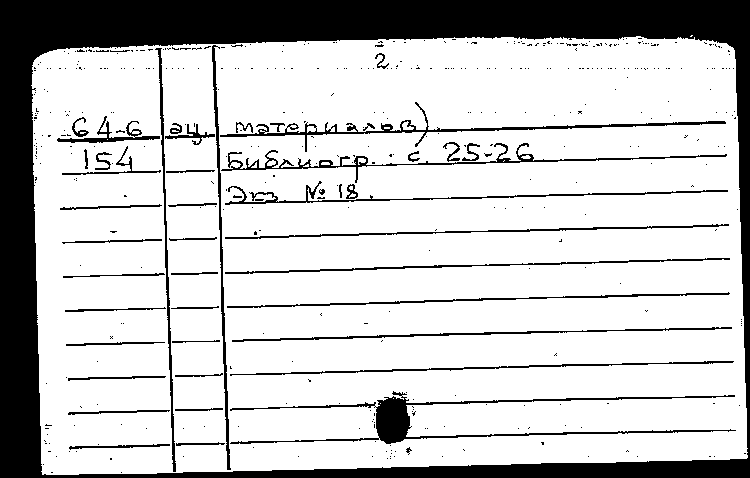 2
64-6 ац. материалов)
154 Библиогр.: с. 25-26
Экз. № 18.